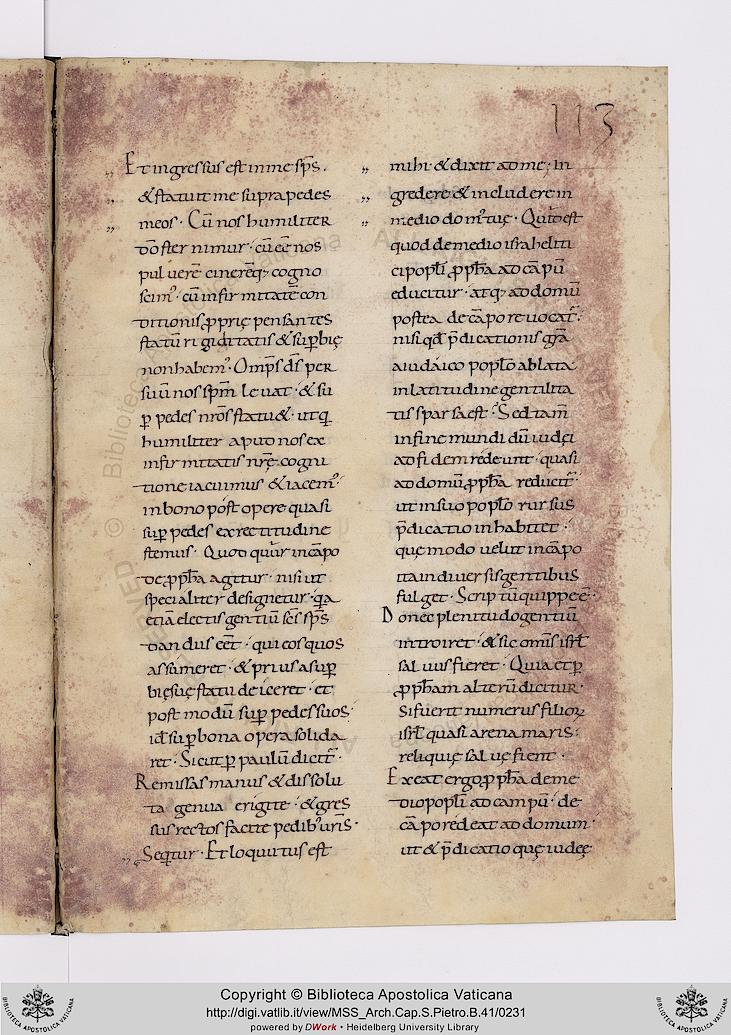 113
„ Et ingressus est in me sp̄s .
„ & statuit me supra pedes
„ meos · Cū nos humiliter
ōoster nimur · cū ēē nos
puluerē cinerēq; cogno
scim᾽ · cū infirmitatē con
ditionis ꝓprię pensantes
statū rigiditatis & suꝑbię
non habem᾽ · Omp̄s d̄s per
suū nos sp̄m leuat · & su
ꝑ pedes nr̄os statu& · ut q̄
humiliter apud nos ex
infirmitatis nr̄ę cogni
tione iacuimus & iacem᾽ ·
in bono post opere quasi
suꝑ pedes ex rectitudine
stemus · Quod in cāpo
de ꝓph̄a agitur · nisi ut
specialiter designetur · q̄a
etiā electis gentiū sc̄s sp̄s
dandus eēt · qui eos quos
assumeret · & prius a suꝑ
bię suę statu deiceret · et
post modū suꝑ pedes suos·
id̄ suꝑ bona opera solida
ret · Sicut ꝑ paulū dicit᷑ ·
Remissas manus & dissolu
ta genua erigite · & gres
sus rectos facite pedib᾽ ur̄is·
„ Seq̄tur · Et loquutus est
„ mihi & dixit ad me · in
„ gredere & includere in
„ medio dom᾽ tuę · Quid est
quod de medio israheliti
ci popl̄i ꝓph̄a ad cāpū
educitur · atq; ad domū
postea de cāpo reuocat᷑ ·
nisi qd̄ p̄dicationis gr̄a
a iudaico popl̄o ablata
in latitudine gentilita
tis sparsa est · Sed tam̄
in fine mundi dū iudęi
ad fidem redeunt · quasi
ad domū ꝓph̄a reducit᷑ ·
ut in suo popl̄o rursus
p̄dicatio inhabitet ·
quę modo uelut in cāpo
ita in diuersis gentibus
fulget · Scriptū quippe ē ·
Donec plenitudo gentiū
introiret · & sic omīs isrl̄
saluus fieret · Quia et ꝑ
ꝓph̄am alterū dicitur ·
Si fuerit numerus filioꝝ
isrl̄ quasi arena maris :
reliquię saluę fient ·
Exeat ergo ꝓph̄a de me
dio popl̄i ad campū · de
cāpo redeat ad domum ·
ut & p̄dicatio quę iudęę
Copyright © Biblioteca Apostolica Vaticana
http://digi.vatlib.it/view/MSS_Arch.Cap.S.Pietro.B.41/0231
powered by DWork • Heidelberg University Library